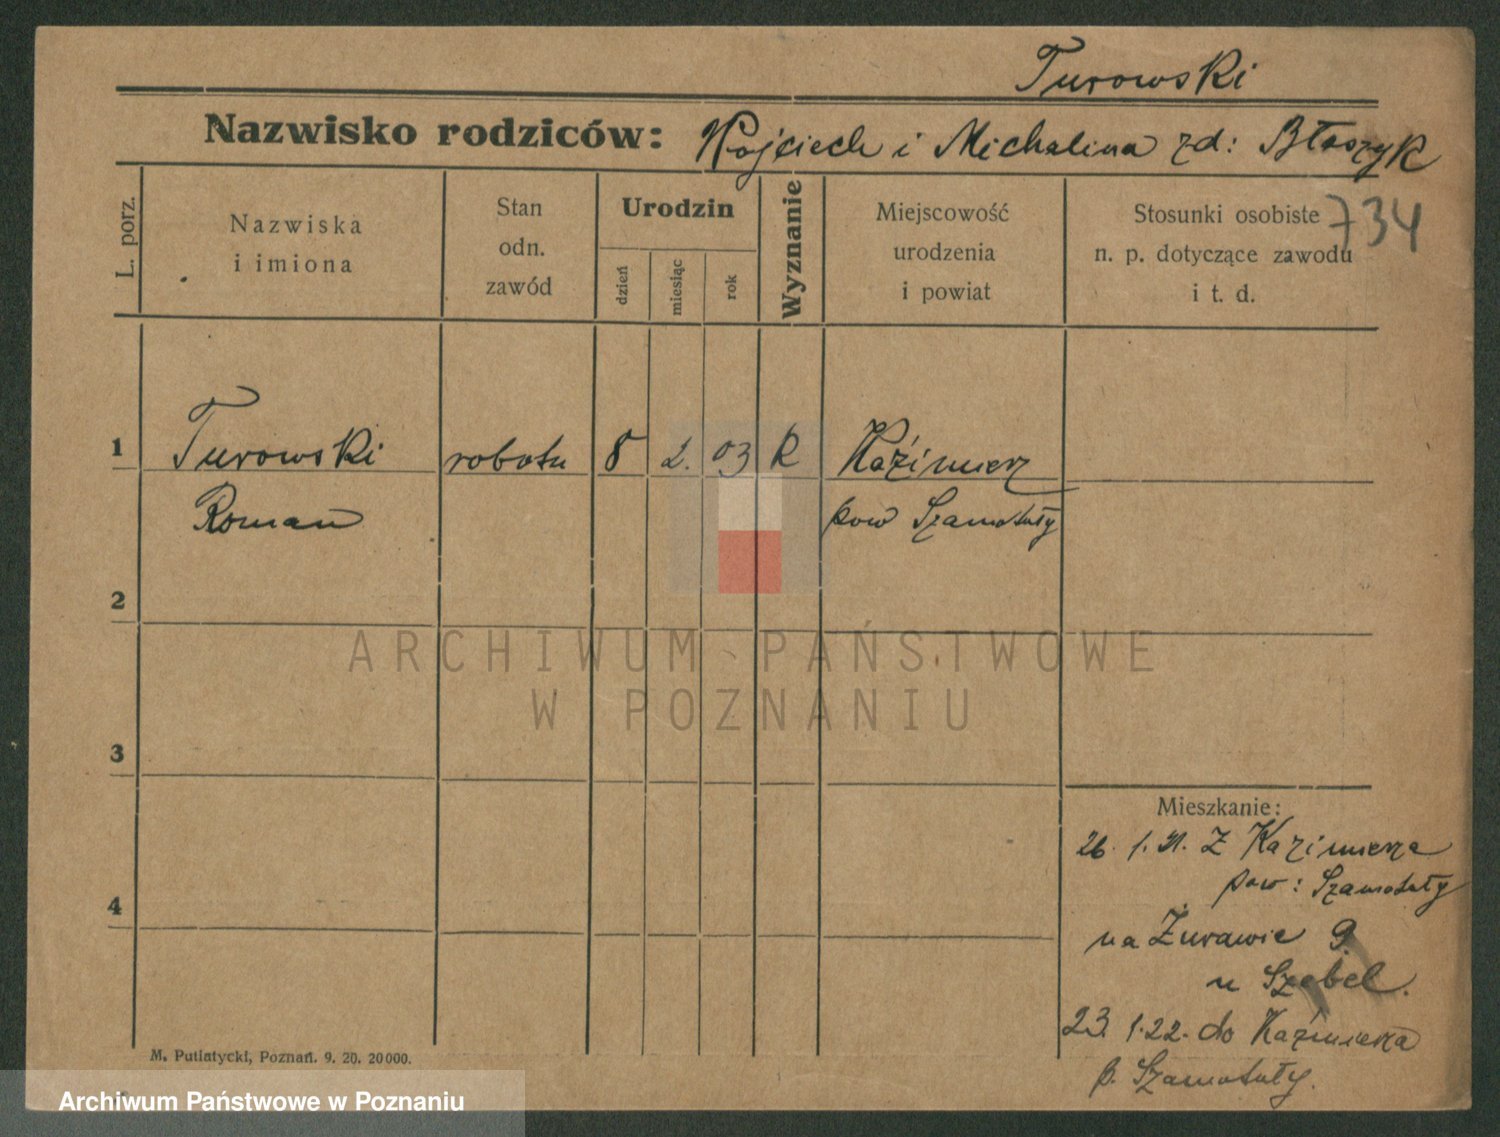 Turowski
Nazwisko rodziców: Wojciech i Michalina zd: Błaszyk
L. porz.
Nazwiska
i imiona
Stan
odn.
zawód
Urodzin
dzień
miesiąc
rok
Wyznanie
Miejscowość
urodzenia
i powiat
Stosunki osobiste
n. p. dotyczące zawodu
i t. d.
734
1
Turowski robotn 8 2. 03 R Kaźmierz
Roman pow Szamotuły
2
ARCHIWUM PAŃSTWOWE
W POZNANIU
3
4
Mieszkanie:
26. 1. 21. Z Kazimierza
pow: Szamotuły
na Żurawie 9.
u Szebel.
23. 1.22. do Kaźmierza
p. Szamotuły.
M. Putiatycki, Poznań. 9. 20. 20000.
Archiwum Państwowe w Poznaniu